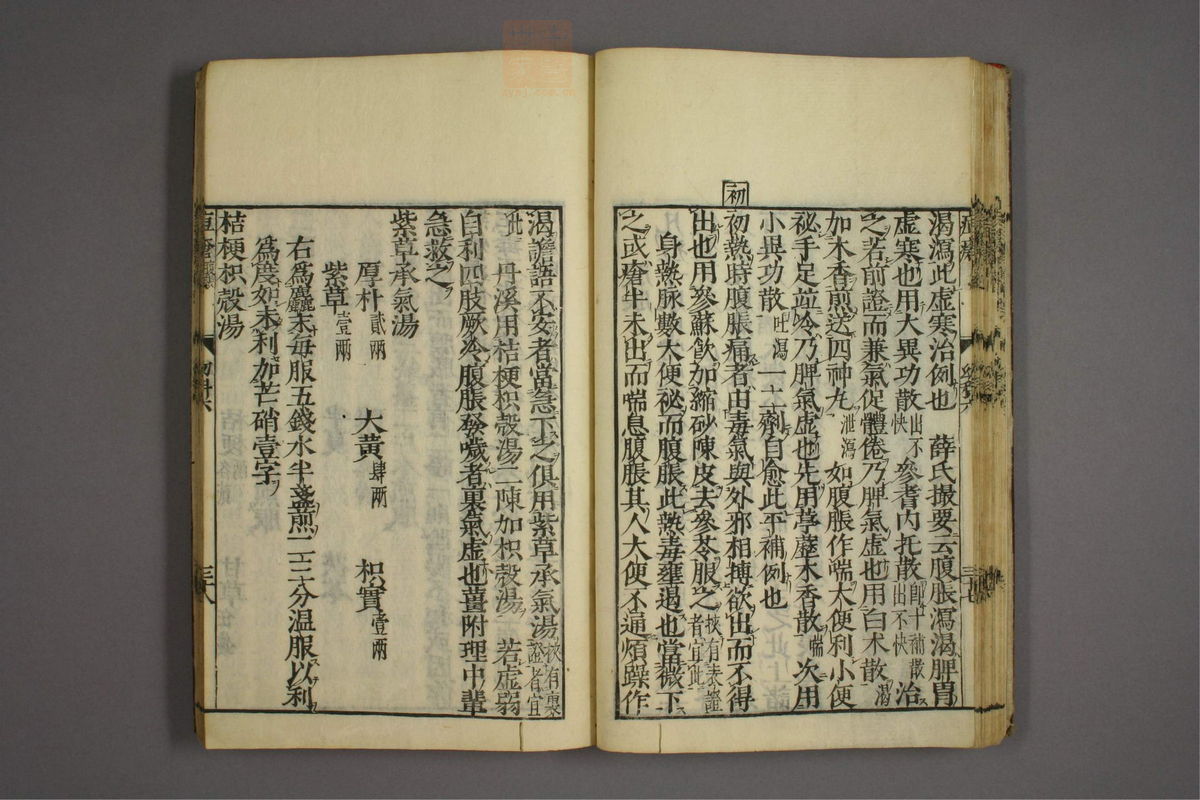 初
渴瀉此虛寒治例也　薛氏撮要云腹脹瀉渴脾胃
虛寒也用大異功散出不快參耆內托散卽十補散出不快治
之若前證而兼氣促體倦乃脾氣虛也用白术散渴
加木香煎送四神丸泄瀉如腹脹作喘大便利小便
祕手足竝冷乃脾氣虛也先用葶藶木香散喘次用
小異功散吐瀉一二劑自愈此平補例也
初熱時腹脹痛者由毒氣與外邪相搏欲出而不得
出也用參蘇飲加縮砂陳皮去參苓服之挾有表證者宜此
身熱脉數大便祕而腹脹此熱毒壅遏也當微下
之或瘡半未出而喘息腹脹其人大便不通煩躁作
渴譫語不安者當急下之俱用紫草承氣湯挾有裏證者宜
此　丹溪用桔梗枳殼湯二陳加枳殼湯　若虛弱
自利四肢厥冷腹脹發噦者裏氣虛也薑附理中輩
急救之
紫草承氣湯
厚朴貳兩　大黃肆兩　枳實壹兩
紫草壹兩
右爲麤末每服五錢水半盞煎一二三分温服以利
爲度如未利加芒硝壹字
桔梗枳殼湯
三十八